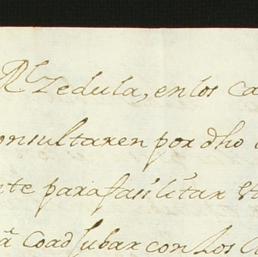 Rl Zedula, en los ca
onsultaren por dho
te para fasilitar
Coadjubar con Los